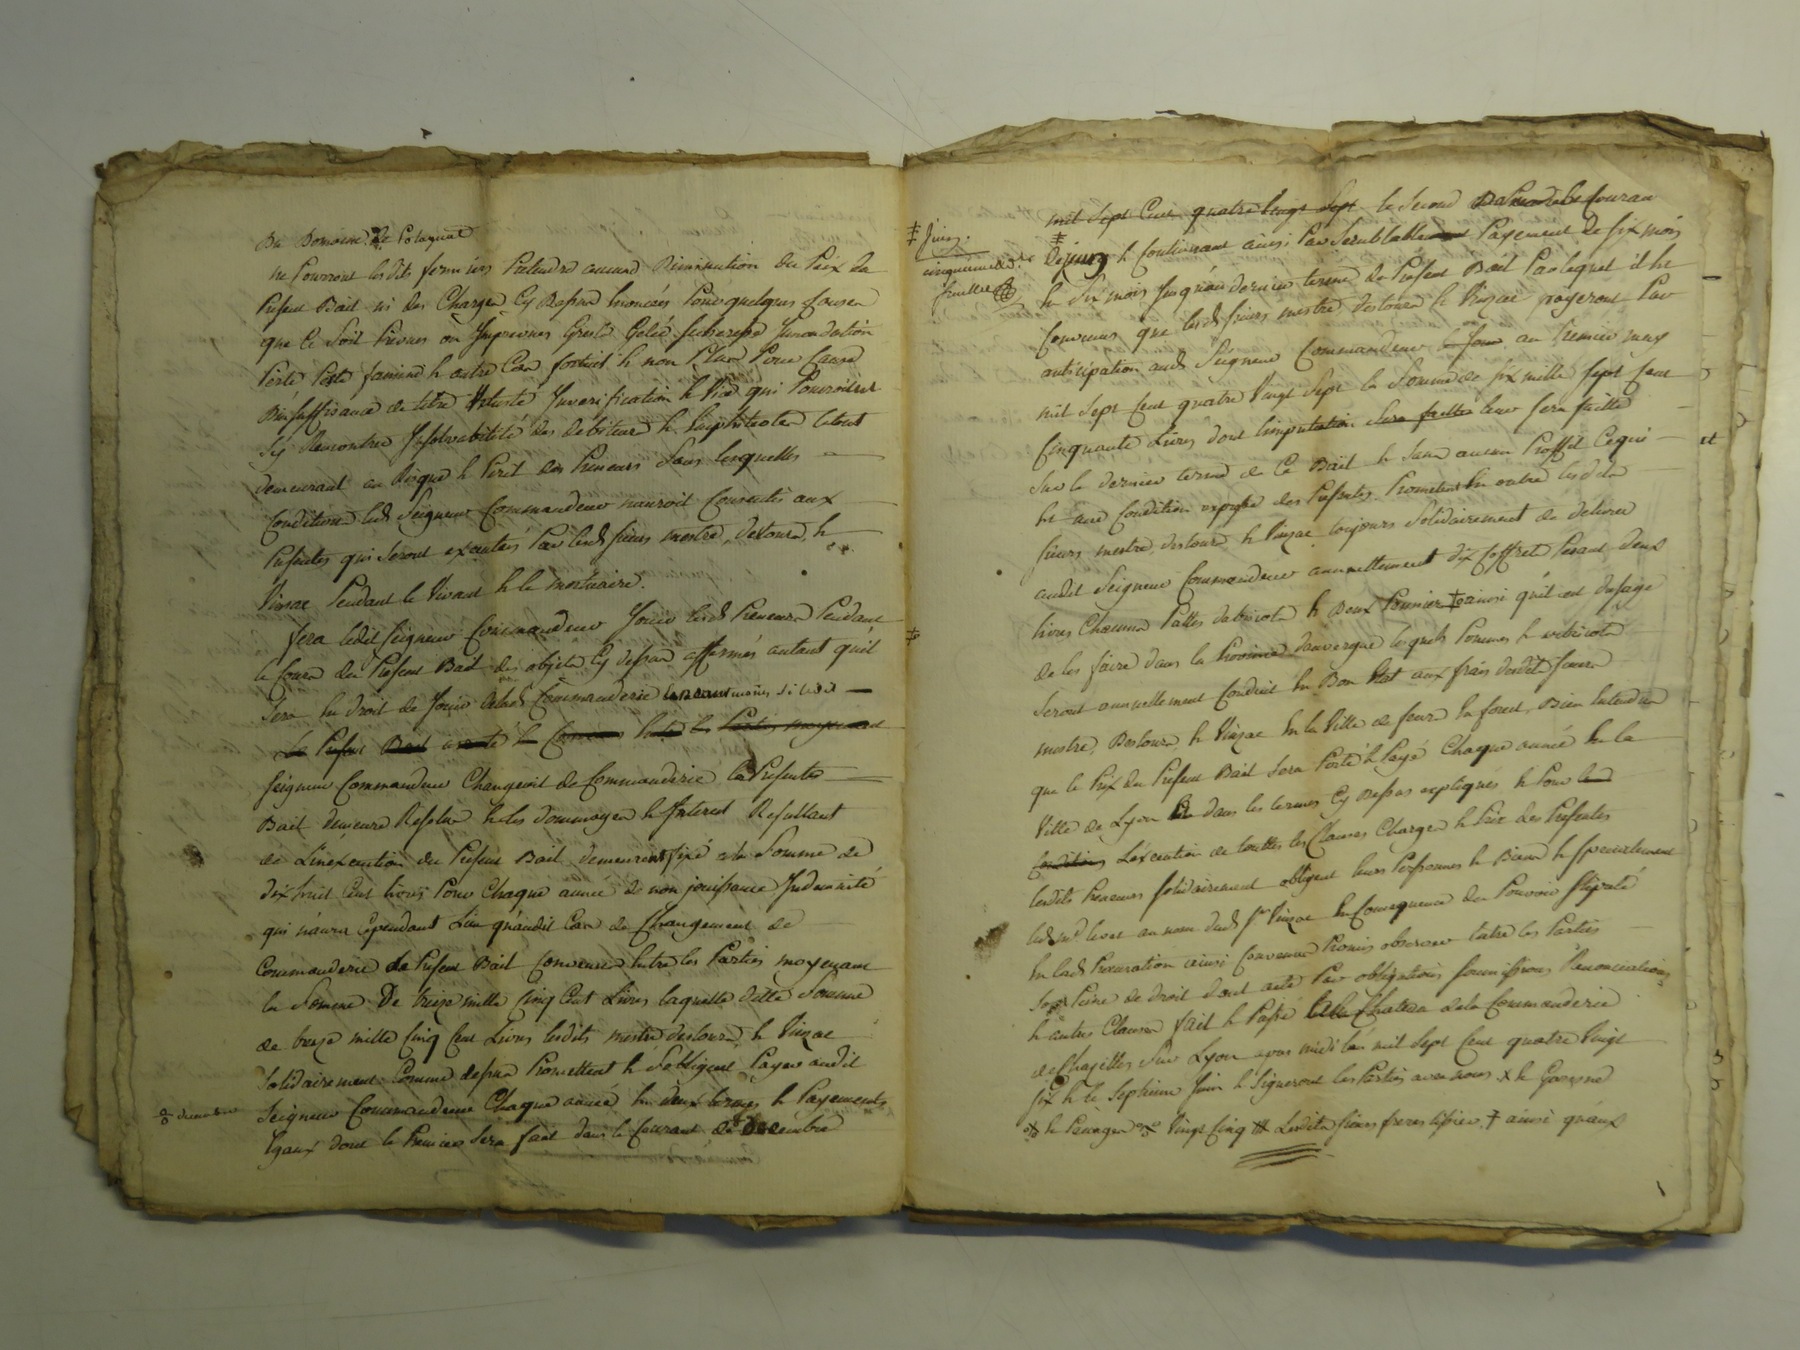 Du Domaine de Polagnat
ne Pourront lesdits fermiers Pretendre aucune Diminution du Prix du
Present Bail ni des Charges Cy Dessus Enoncées Pour quelques Causes
que Ce Soit Prevues ou Imprevues Grele Gelée Secheresse Innondation
Perte Peste famine & autre Cas fortuit & non Plus Pour Cause
D'insuffisance de titre Vetusté Inverification & Vice qui Pourroient
s'y Rencontrer Insolvabilité des debiteurs & Emphiteotes letout
demeurant au Risque & Peril des Preneurs Sans lesquelles
Conditions led. Seigneur Commandeur n'auroit Consentis aux
Presentes qui Seront executées Par lesd. sieurs mestre, destours, &
Vinzac Pendant le Vivant & le mortuaire.
fera ledit seigneur Commandeur Jouir lesd. Preneurs Pendant
le Cours du Present Bail des objets Cy dessus affermés autant qu'il
Sera En droit de Jouir de lad. Commanderie & neantmoins si ledit
Le Present Bail
seigneur Commandeur Changeoit de Commanderie le Present
Bail demeure Resolu & les dommages & Interest Resultant
de L'inexecution du Present Bail demeurent fixé a la Somme de
dix huit Cent livres Pour Chaque année de non jouissance Indemnité
qui n'aura Cependant Lieu qu'audit Cas de Changement de
Commanderie Le Present Bail Convenu Entre les Parties moyenant
la Somme De treize mille Cinq Cent Livres laquelle ditte Somme
de treize mille Cinq Cent Livres lesdits mestre destours, & Vinzac
Solidairement Comme dessus Promettent & s'obligent Payer audit
Seigneur Commandeur Chaque année En deux termes & Payements
Egaux dont le Premier Sera fait dans le Courant de Decembre
mil Sept Cent quatre Vingt Sept le Second Dans le Couran
‡ Juin.
cinquieme
feuillet
De juin & Continuant ainsi Par Semblable Payement De six mois
En Six mois Jusqu'au dernier terme du Present Bail Par lequel il Est
Convenus que lesd. sieurs mestre destours & Vinzac payeront Par
anticipation aud. Seigneur Commandeur au Premier mars
mil Sept Cent quatre Vingt Sept la Somme de six mille Sept Cent
Cinquante Livres dont l'imputation leur Sera faitte
Sur le dernier terme de Ce Bail & Sans aucun Proffit Ce qui
Est une Condition expresse des Presentes. Promettent En outre lesdits
sieurs mestre, destours & Vinzac toujours Solidairement de delivrer
audit Seigneur Commandeur annuellement dix Coffrets Pesant deux
livres Chacuns Pattes d'abricots & Deux Pommier ‡ ainsi qu'il est d'usage
de les faire dans la Province d'auvergne lesquels Pommes & abricots
Seront annuellement Conduit En Bon Etat aux frais desdits sieurs
mestre, Destours & Vinzac En la Ville de feurs En forest, Bien Entendu
que le Prix du Present Bail Sera Porté & Payé Chaque année En la
Ville de Lyon dans les termes Cy Dessus expliqués & Pour
L'éxecution de touttes les Clauses Charges & Prix des Presentes
lesdits Preneurs Solidairement obligent leurs Personnes & Biens & specialement
au nom dud. sr Vinzac En Consequence du Pouvoir stipulé
En lad. Procuration ainsi Convenu Promis observer Entre les Parties
Sous Peine de droit dont acte Par obligations soumissions Renonciations
& autres Clauses fait & Passé Chateau de la Commanderie
de Chazelles Sur Lyon avant midi l'an mil Sept Cent quatre Vingt
six & le Septieme Juin & Signeront les Parties avec nous
Vingt Cinq Lesdits sieurs freres ‡ ainsi qu'aux